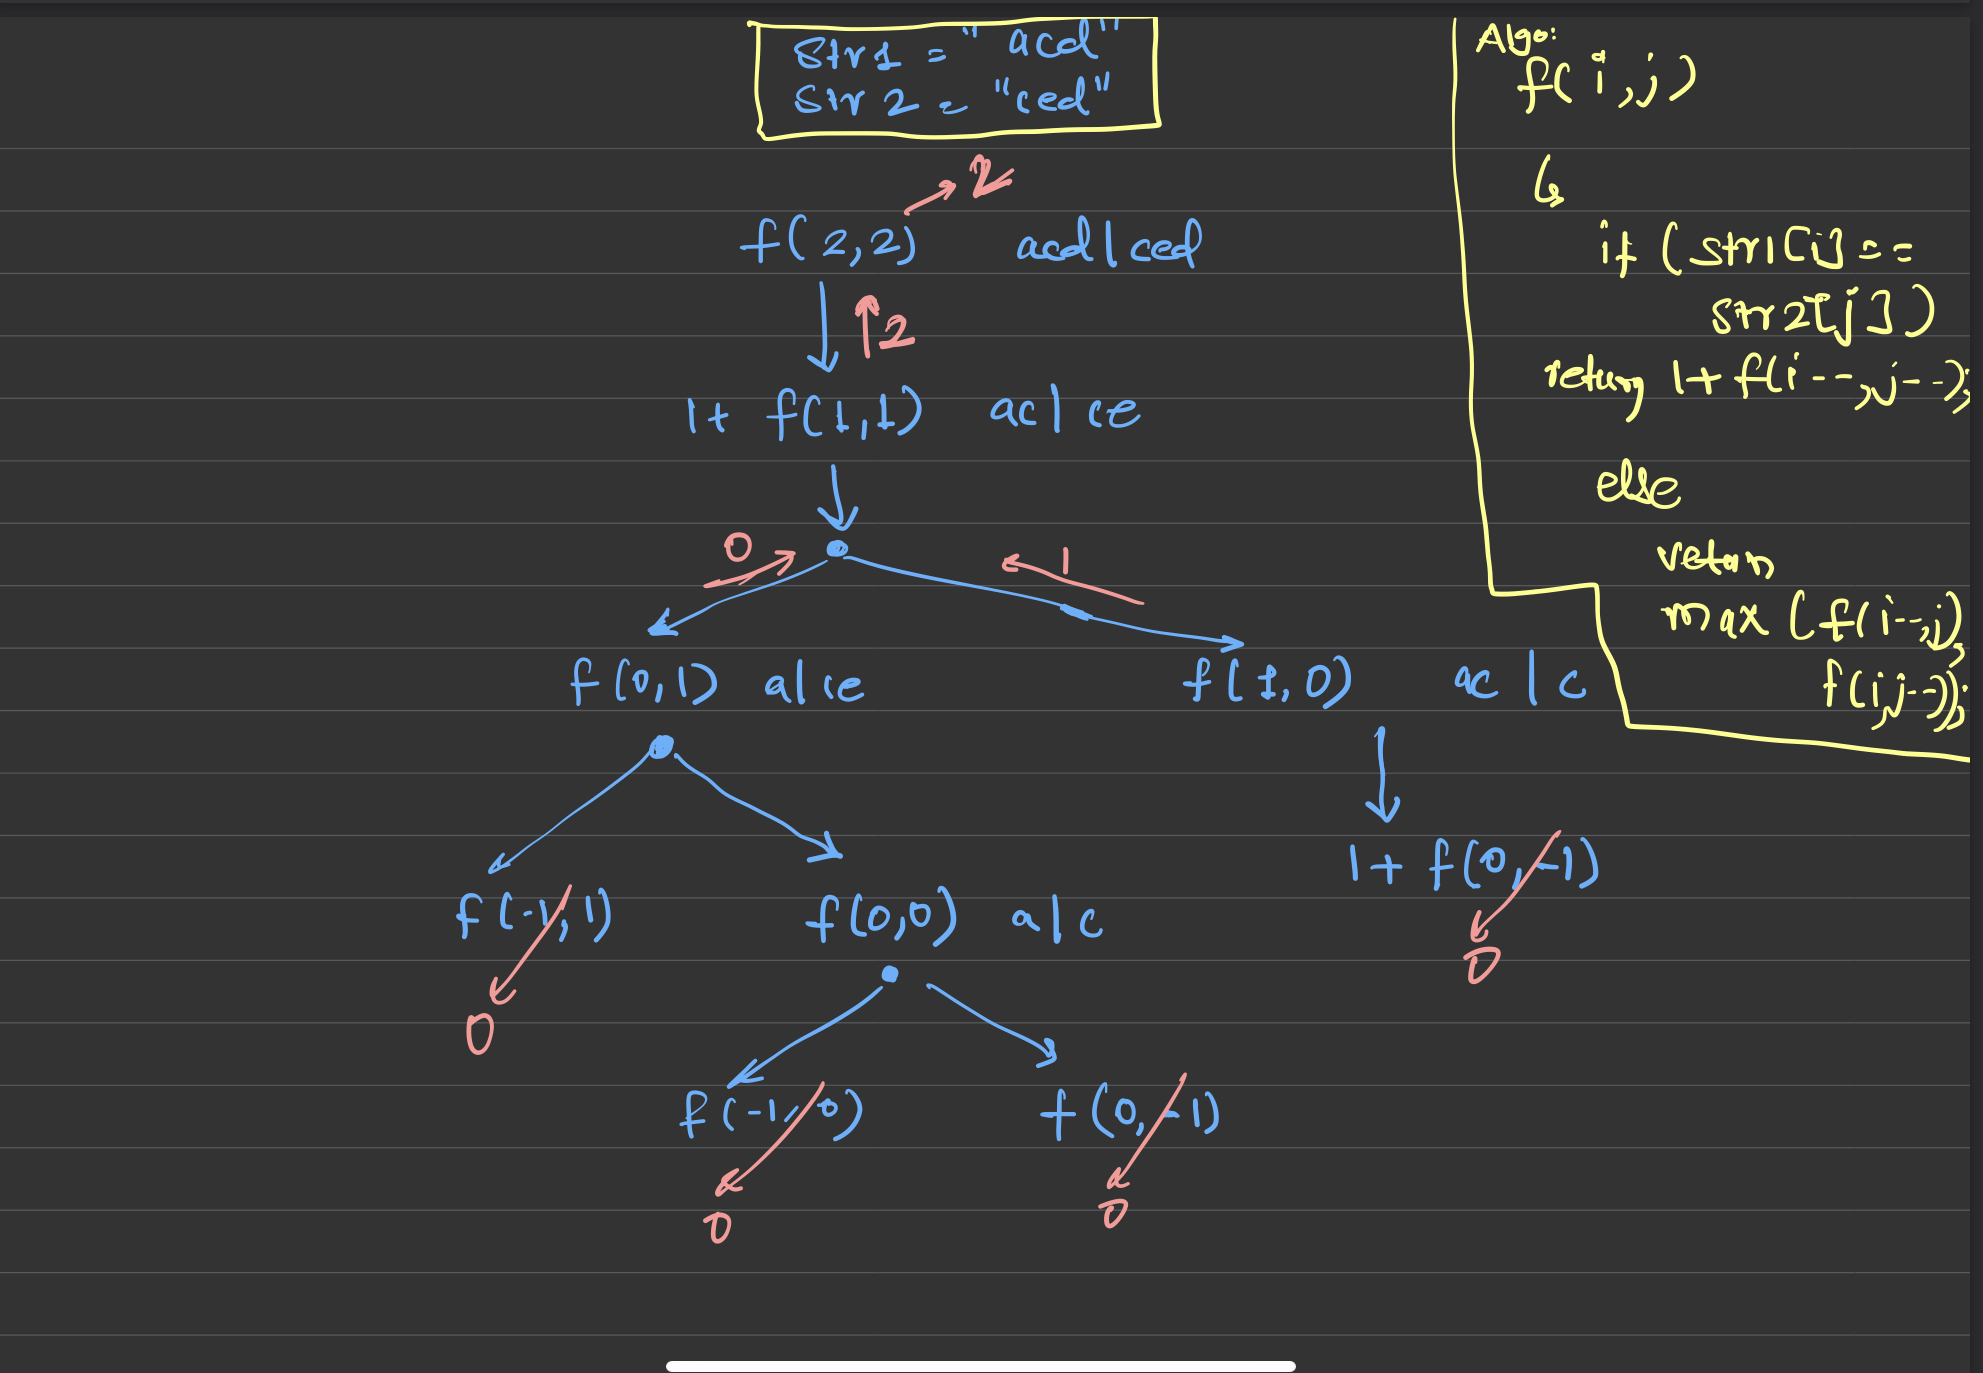 str1 = "acd"
str2 = "ced"
2
f(2,2) acd|ced
2
1+ f(1,1) ac|ce
0
1
f(0,1) a|ce
f(1,0) ac|c
f(-1,1)
f(0,0) a|c
1+ f(0,-1)
0
0
f(-1,0)
f(0,-1)
0
0
Algo:
f(i,j)
if (str1[i]==
str2[j])
return 1+f(i--,j--);
else
return
max(f(i--,j),
f(i,j--));